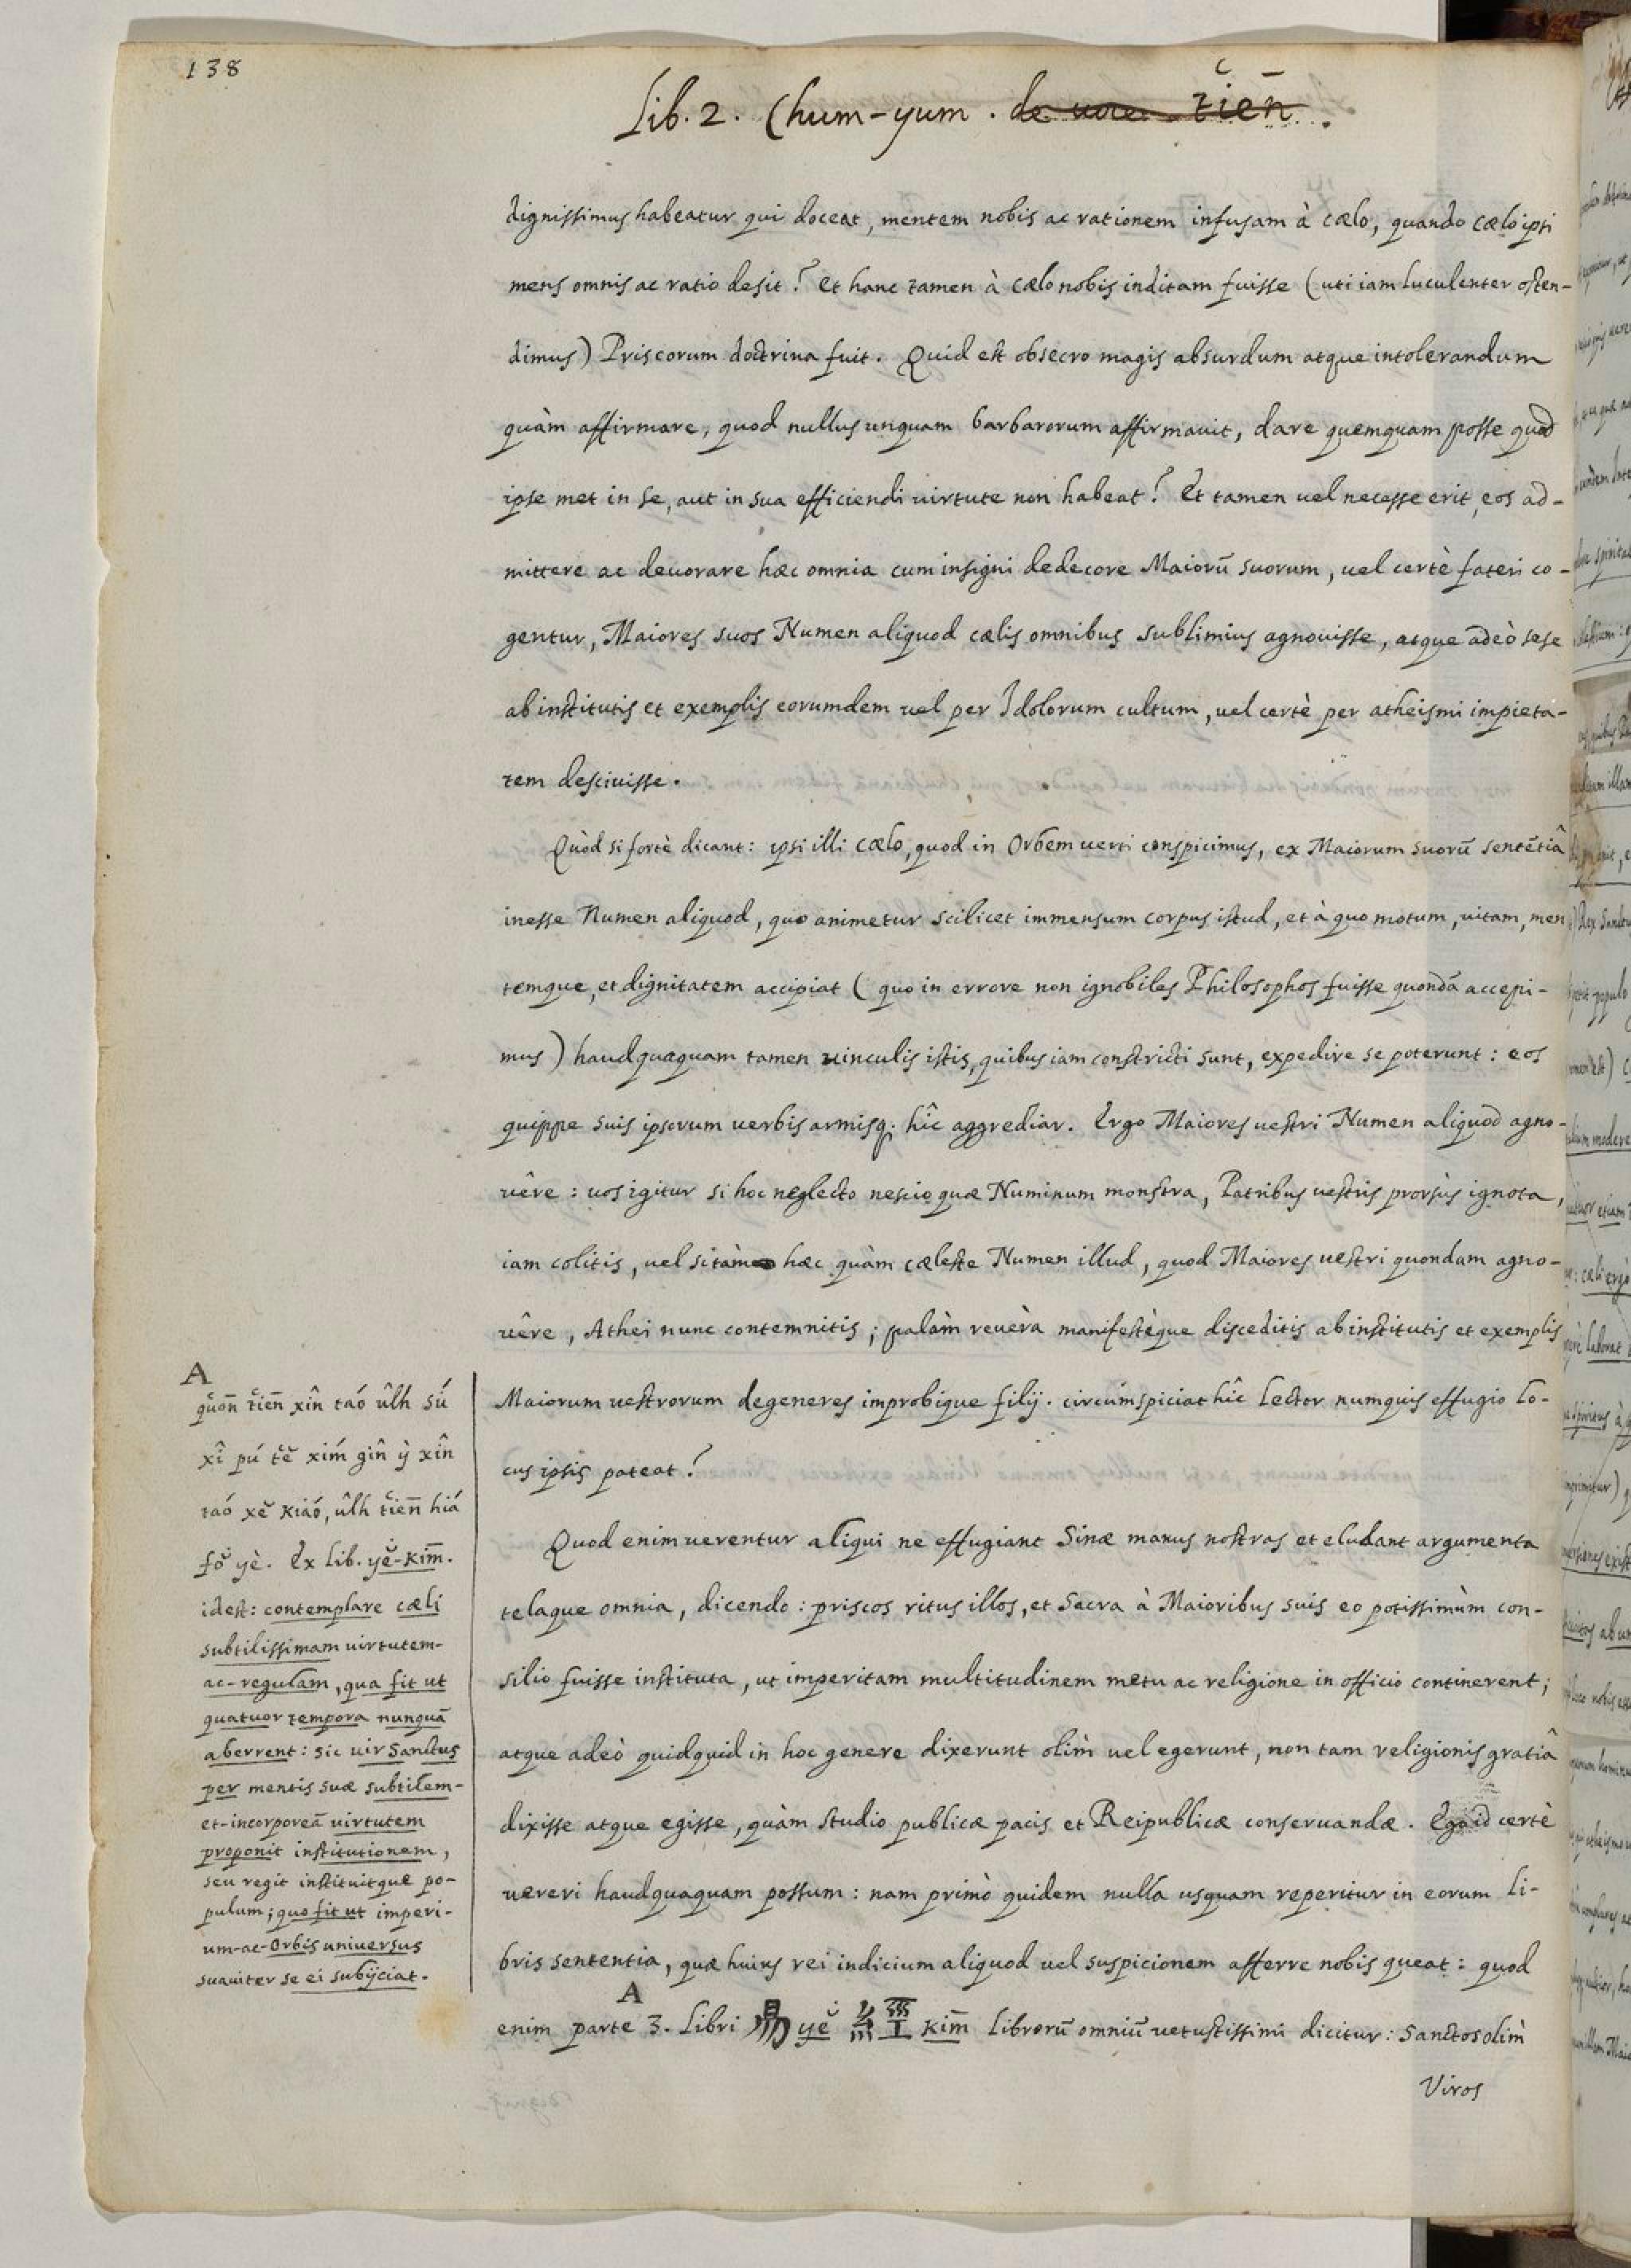 138
Lib. 2. Chum-yum. de uoce tien.
dignissimus habeatur qui doceat, mentem nobis ac rationem infusam à cœlo, quando cœlo ipsi
mens omnis ac ratio desit? et hanc tamen à cœlo nobis inditam fuisse (uti iam luculenter osten-
dimus) Priscorum doctrina fuit. Quid est obsecro magis absurdum atque intolerandum
quàm affirmare, quod nullus unquam barbarorum affirmauit, dare quemquam posse quod
ipse met in se, aut in sua efficiendi uirtute non habeat? Et tamen uel necesse erit, eos ad-
mittere ac deuorare hæc omnia cum insigni dedecore Maiorū suorum, uel certè fateri co-
gentur, Maiores suos Numen aliquod cœlis omnibus sublimius agnouisse, atque adeò sese
ab institutis et exemplis eorumdem uel per Idolorum cultum, uel certè per atheismi impieta-
tem desciuisse.
Quòd si fortè dicant: ipsi illi cœlo, quod in Orbem uerti conspicimus, ex Maiorum suorū sentētiâ
inesse Numen aliquod, quo animetur scilicet immensum corpus istud, et à quo motum, uitam, men
temque, et dignitatem accipiat (quo in errore non ignobiles Philosophos fuisse quondā accepi-
mus) haudquaquam tamen uinculis istis, quibus iam constricti sunt, expedire se poterunt: eos
quippe suis ipsorum uerbis armisq; hîc aggrediar. Ergo Maiores uestri Numen aliquod agno-
uêre: uos igitur si hoc neglecto nescio quæ Numinum monstra, Patribus uestris prorsùs ignota,
iam colitis, uel si tàm hæc quàm cæleste Numen illud, quod Maiores uestri quondam agno-
uêre, Athei nunc contemnitis; palàm reuèra manifestèque disceditis ab institutis et exemplis
Maiorum uestrorum degeneres improbique filij. circúmspiciat hîc lector numquis effugio lo-
cus ipsis pateat?
Quod enim uerentur aliqui ne effugiant Sinæ manus nostras et eludant argumenta
telaque omnia, dicendo: priscos ritus illos, et Sacra à Maioribus suis eo potissimùm con-
silio fuisse instituta, ut imperitam multitudinem metu ac religione in officio continerent;
atque adeò quidquid in hoc genere dixerunt olim uel egerunt, non tam religionis gratiâ
dixisse atque egisse, quàm studio publicæ pacis et Reipublicæ conseruandæ. Ego id certè
uereri haudquaquam possum: nam primò quidem nulla usquam reperitur in eorum li-
bris sententia, quæ huius rei indicium aliquod uel suspicionem afferre nobis queat: quod
A
enim parte 3. Libri 易 yĕ 經 kīm librorū omniū uetustissimi dicitur: Sanctos olim
Viros
A
quōn tiēn xîn taó ûlh sú
xî pú tĕ xím gîn ỳ xîn
taó xĕ kiáo, ûlh tiēn hiá
fŏ yè. Ex Lib. yĕ-kīm.
idest: contemplare cœli
subtilissimam uirtutem-
ac-regulam, qua fit ut
quatuor tempora nunquā
aberrent: sic uir Sanctus
per mentis suæ subtilem-
et-incorporeā uirtutem
proponit institutionem,
seu regit instituitque po-
pulum; quo fit ut imperi-
um-ac-Orbis uniuersus
suauiter se ei subijciat.